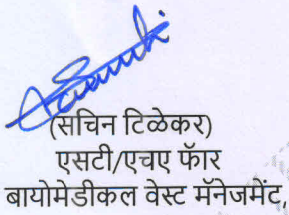 (सचिन टिळेकर)
एसटी/एचए फॅार
बायोमेडीकल वेस्ट मॅनेजमेंट,